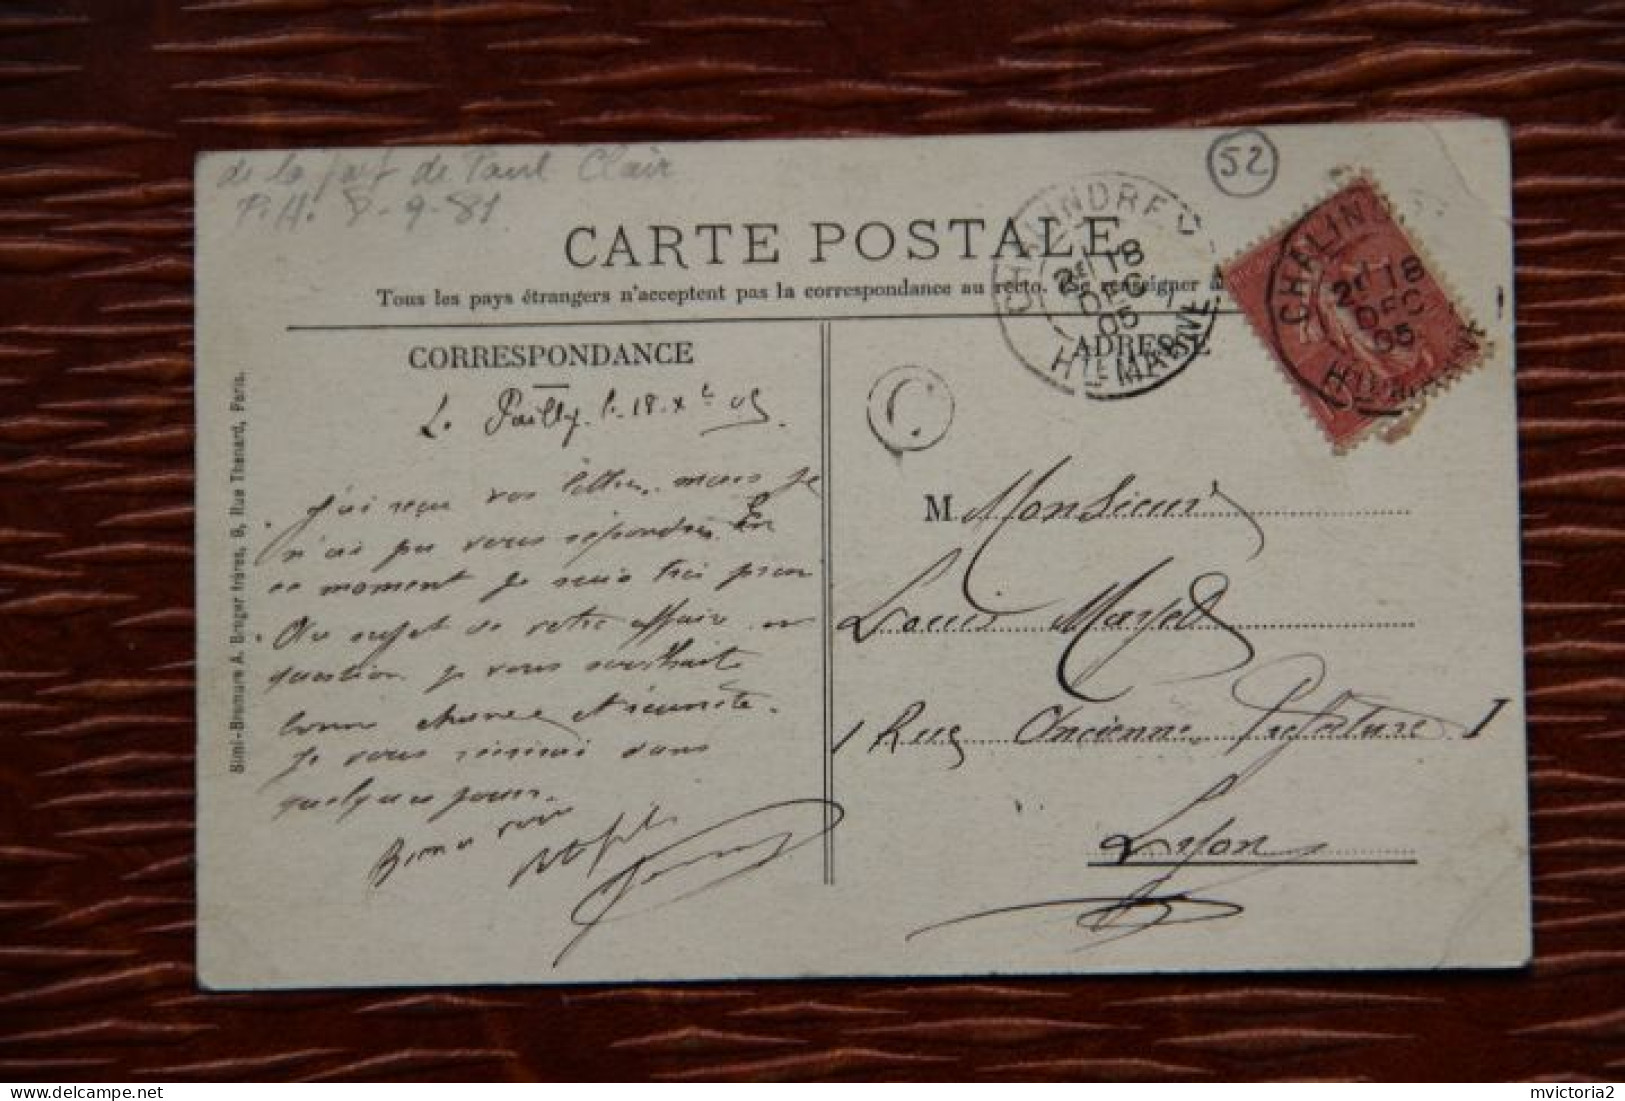 de la part de Paul Clair
P.H. 8-9-81
52
CARTE POSTALE
Tous les pays étrangers n'acceptent pas la correspondance au recto. (Se renseigner à
CORRESPONDANCE
ADRESSE
CHALINDREY
2E 18
DEC
05
HTE MARNE
CHALIN
2E 18
DEC
05
HTE MARNE
C
Le Pailly le 18 Xbre 05
J'ai reçu vos lettres mais je
n'ai pu vous répondre En
ce moment je suis très pris
Au sujet de votre affaire en
question je vous souhaite
bonne chance et réussite.
Je vous
dans
quelques jours.
M. Monsieur
Louis Mayet
1 Rue Ancienne Préfecture 1
Lyon
Simi-Bromure A. Breger frères, 9, Rue Thénard, Paris.
mvictoria2